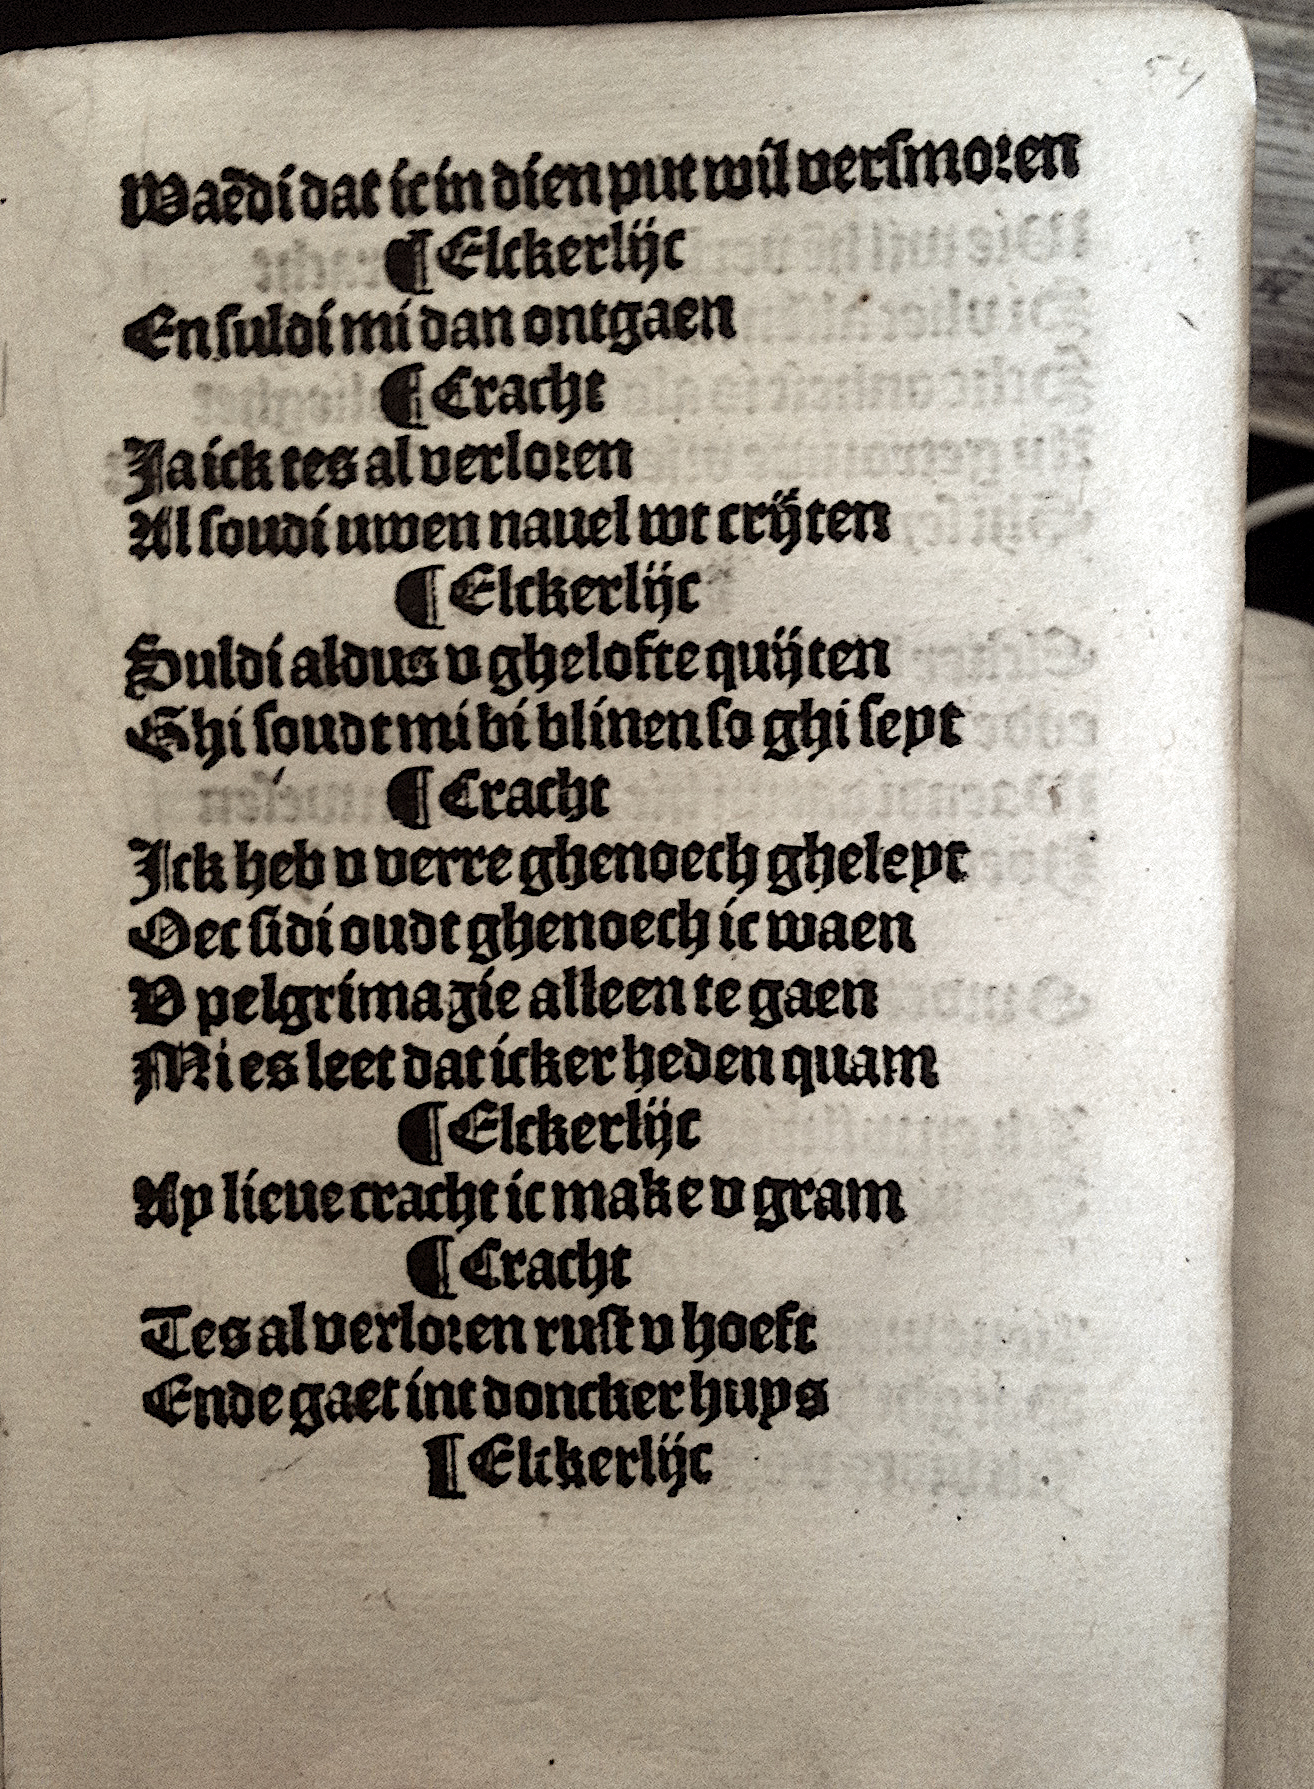 Waẽdi dat ic in dien put wil versmoren
¶ Elckerlijc
En suldi mi dan ontgaen
¶ Cracht
Ja ick tes al verloren
Al soudi uwen nauel wt crijten
¶ Elckerlijc
Suldi aldus v ghelofte quijten
Ghi soudt mi bi bliuen so ghi seyt
¶ Cracht
Ick heb v verre ghenoech gheleyt
Oec sidi oudt ghenoech ic waen
V pelgrimagie alleen te gaen
Mi es leet dat icker heden quam
¶ Elckerlijc
Ay lieue cracht ic make v gram
¶ Cracht
Tes al verloren rust v hoeft
Ende gaet int doncker huys
¶ Elckerlijc